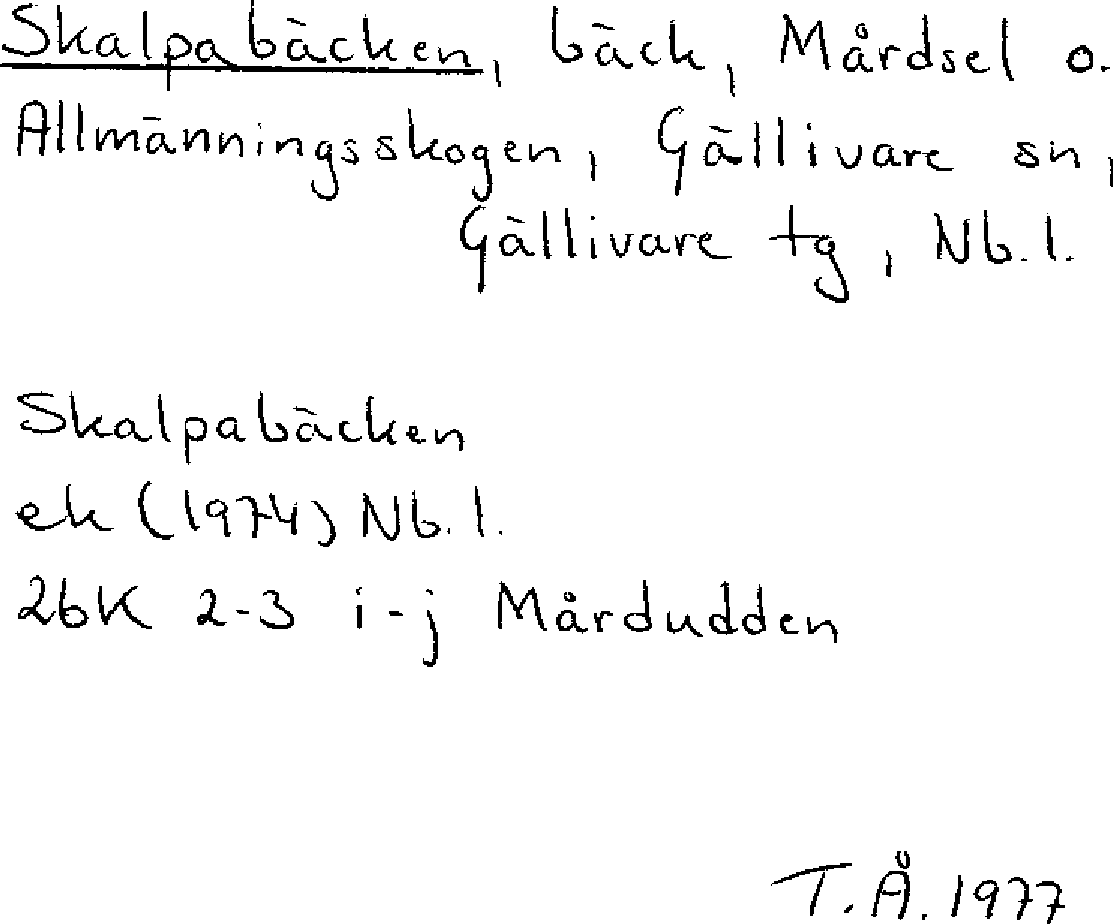 Skalpabäcken, bäck, Mårdsel o.
Allmänningsskogen, Gällivare sn,
Gällivare tg, Nb.l.
Skalpabäcken
ek (1974) Nb.l.
26K 2-3 i-j Mårdudden
T.Å. 1977